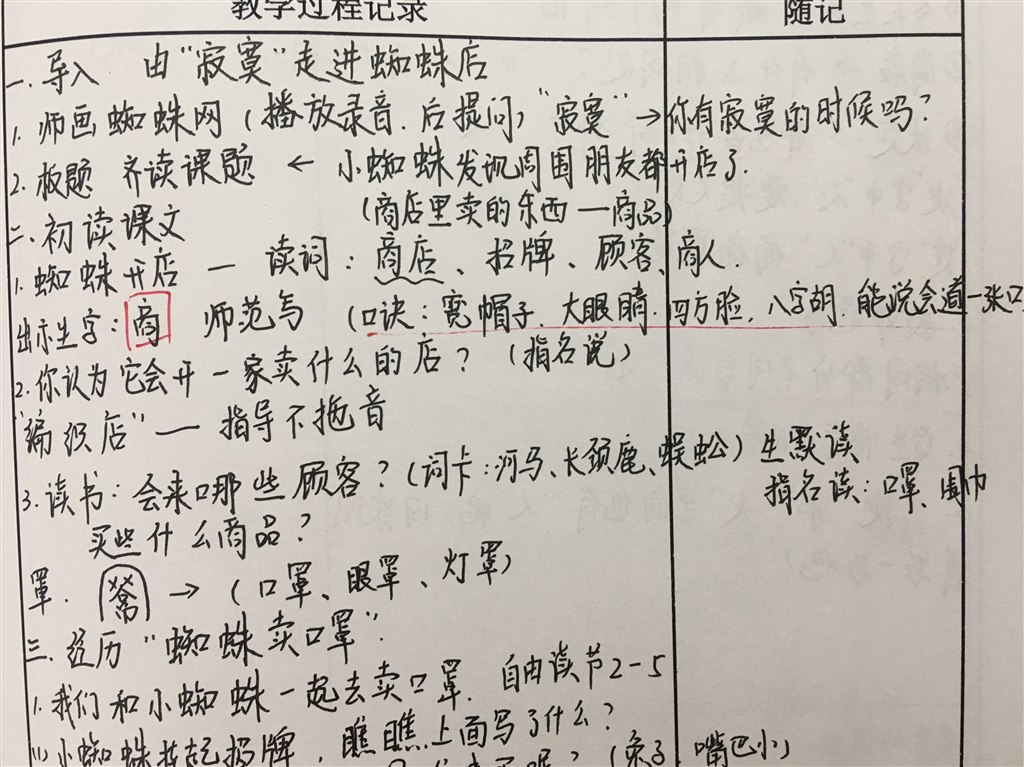 教学过程记录 随记
一.导入 由“寂寞”走进蜘蛛店
1.师画蜘蛛网(播放录音.后提问)“寂寞”→你有寂寞的时候吗?
2.板题 齐读课题 ← 小蜘蛛发现周围朋友都开店了.
(商店里卖的东西—商品)
二.初读课文
1.蜘蛛开店 — 读词:商店、招牌、顾客、商人.
出示生字:商 师范写 (口诀:宽帽子.大眼睛.四方脸.八字胡.能说会道一张口
2.你认为它会开一家卖什么的店?(指名说)
“编织店”— 指导不拖音
3.读书:会来哪些顾客?(词卡:河马、长颈鹿、蜈蚣)生默读
指名读:口罩、围巾
买些什么商品?
罩. →(口罩、眼罩、灯罩)
三.经历“蜘蛛卖口罩”.
1.我们和小蜘蛛一起去卖口罩.自由读节2-5
(1)小蜘蛛挂起招牌,瞧瞧上面写了什么?
(兔子.嘴巴小)